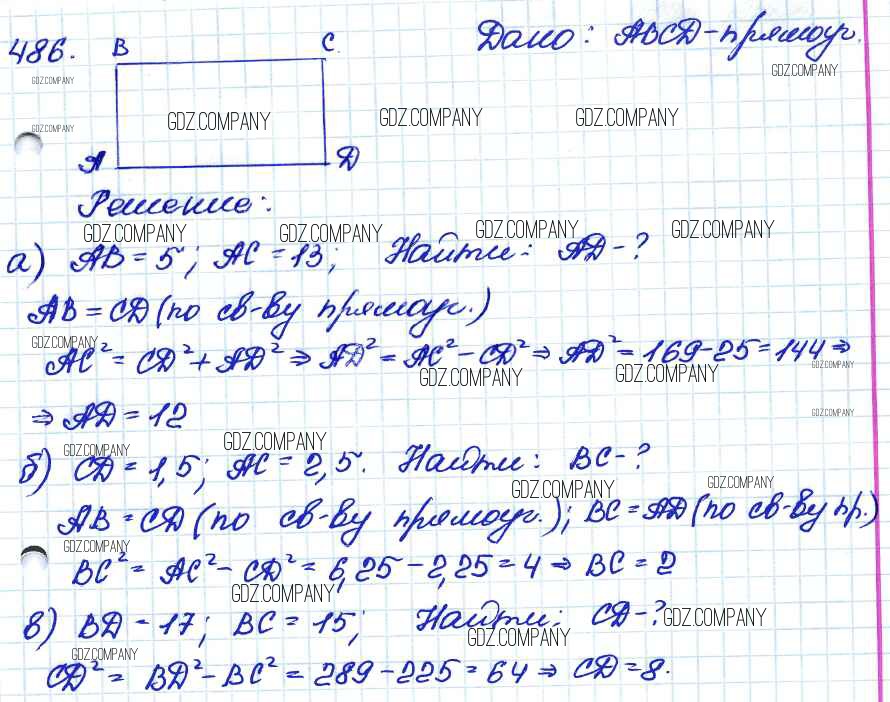 486. B C Дано: ABCD - прямоуг.
GDZ.COMPANY GDZ.COMPANY
GDZ.COMPANY GDZ.COMPANY GDZ.COMPANY GDZ.COMPANY
A D
Решение:
GDZ.COMPANY GDZ.COMPANY GDZ.COMPANY GDZ.COMPANY
а) AB = 5; AC = 13; Найти: AD - ?
AB = CD (по св-ву прямоуг.)
GDZ.COMPANY
AC² = CD² + AD² ⇒ AD² = AC² - CD² ⇒ AD² = 169 - 25 = 144 ⇒
GDZ.COMPANY GDZ.COMPANY GDZ.COMPANY
⇒ AD = 12
GDZ.COMPANY
GDZ.COMPANY GDZ.COMPANY
б) CD = 1,5; AC = 2,5. Найти: BC - ?
GDZ.COMPANY GDZ.COMPANY
AB = CD (по св-ву прямоуг.); BC = AD (по св-ву пр.)
GDZ.COMPANY
BC² = AC² - CD² = 6,25 - 2,25 = 4 ⇒ BC = 2
GDZ.COMPANY
в) BD = 17; BC = 15; Найти: CD - ?
GDZ.COMPANY GDZ.COMPANY
GDZ.COMPANY
CD² = BD² - BC² = 289 - 225 = 64 ⇒ CD = 8.